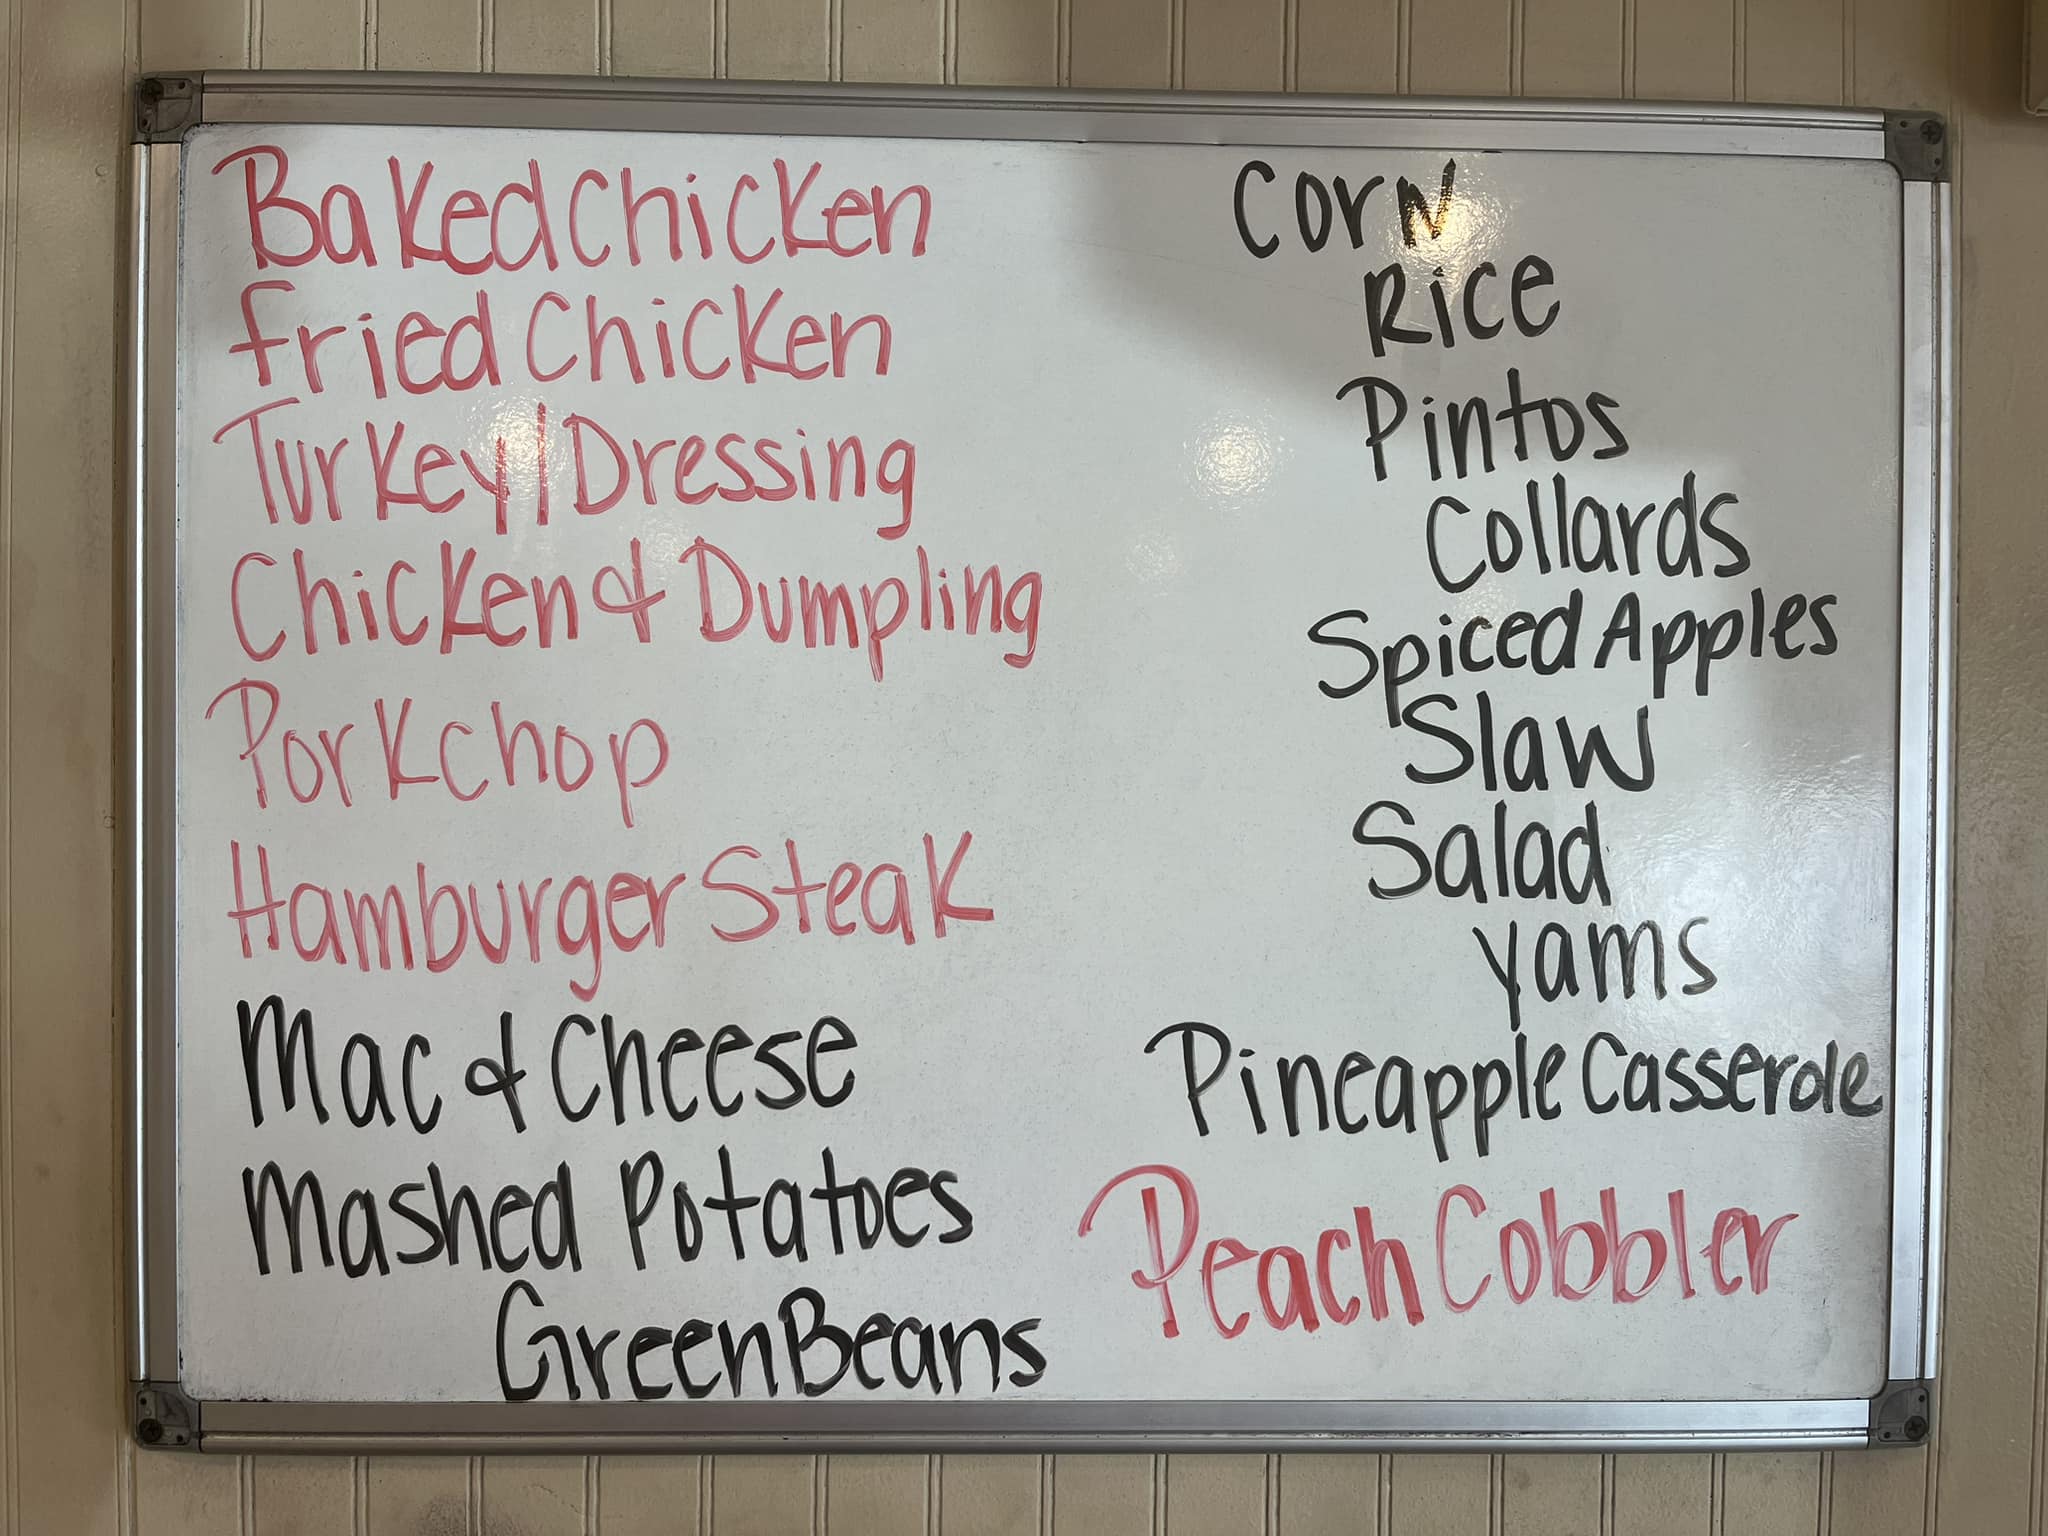 Baked Chicken
Fried Chicken
Turkey/Dressing
Chicken & Dumpling
Porkchop
Hamburger Steak
Mac & Cheese
Mashed Potatoes
Green Beans
Corn
Rice
Pintos
Collards
Spiced Apples
Slaw
Salad
Yams
Pineapple Casserole
Peach Cobbler